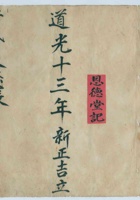 恩德堂記
道光十三年新正吉立